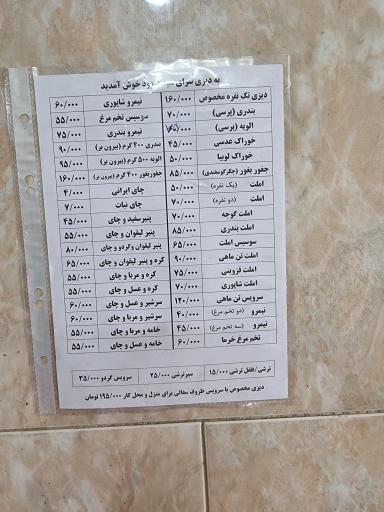 به دیزی سرای خوش آمدید
دیزی تک نفره مخصوص ۱۶۰/۰۰۰
بندری (پرسی) ۷۰/۰۰۰
الویه (پرسی)
خوراک عدسی ۴۵/۰۰۰
خوراک لوبیا ۵۰/۰۰۰
جغوربغور (جگرگوسفندی) ۸۵/۰۰۰
املت (یک نفره) ۵۰/۰۰۰
املت (دو نفره) ۷۰/۰۰۰
املت گوجه ۷۰/۰۰۰
املت بندری ۸۵/۰۰۰
سوسیس املت ۶۵/۰۰۰
املت تن ماهی ۹۰/۰۰۰
املت قزوینی ۷۵/۰۰۰
املت شاپوری ۷۰/۰۰۰
سرویس تن ماهی ۱۲۰/۰۰۰
نیمرو (دو تخم مرغ) ۴۰/۰۰۰
نیمرو (سه تخم مرغ) ۴۵/۰۰۰
تخم مرغ خرما ۶۰/۰۰۰
نیمرو شاپوری ۶۰/۰۰۰
سوسیس تخم مرغ ۵۵/۰۰۰
نیمرو بندری ۷۵/۰۰۰
بندری ۴۰۰ گرم (بیرون بر) ۹۰/۰۰۰
الویه ۵۰۰ گرم (بیرون بر) ۹۵/۰۰۰
جغوربغور ۴۰۰ گرم (بیرون بر) ۱۶۰/۰۰۰
چای ایرانی ۴/۰۰۰
چای نبات ۷/۰۰۰
پنیرسفید و چای ۴۵/۰۰۰
پنیر لیقوان و چای ۵۵/۰۰۰
پنیر لیقوان وگردو و چای ۸۰/۰۰۰
کره و پنیر لیقوان و چای ۶۵/۰۰۰
کره و مربا و چای ۵۵/۰۰۰
کره و عسل و چای ۵۵/۰۰۰
سرشیر و عسل و چای ۶۰/۰۰۰
سرشیر و مربا و چای ۶۰/۰۰۰
خامه و مربا و چای ۵۵/۰۰۰
خامه و عسل و چای ۵۵/۰۰۰
ترشی/فلفل ترشی ۱۵/۰۰۰ سیرترشی ۲۵/۰۰۰ سرویس گردو ۳۵/۰۰۰
دیزی مخصوص با سرویس ظروف سفالی برای منزل و محل کار ۱۹۵/۰۰۰ تومان